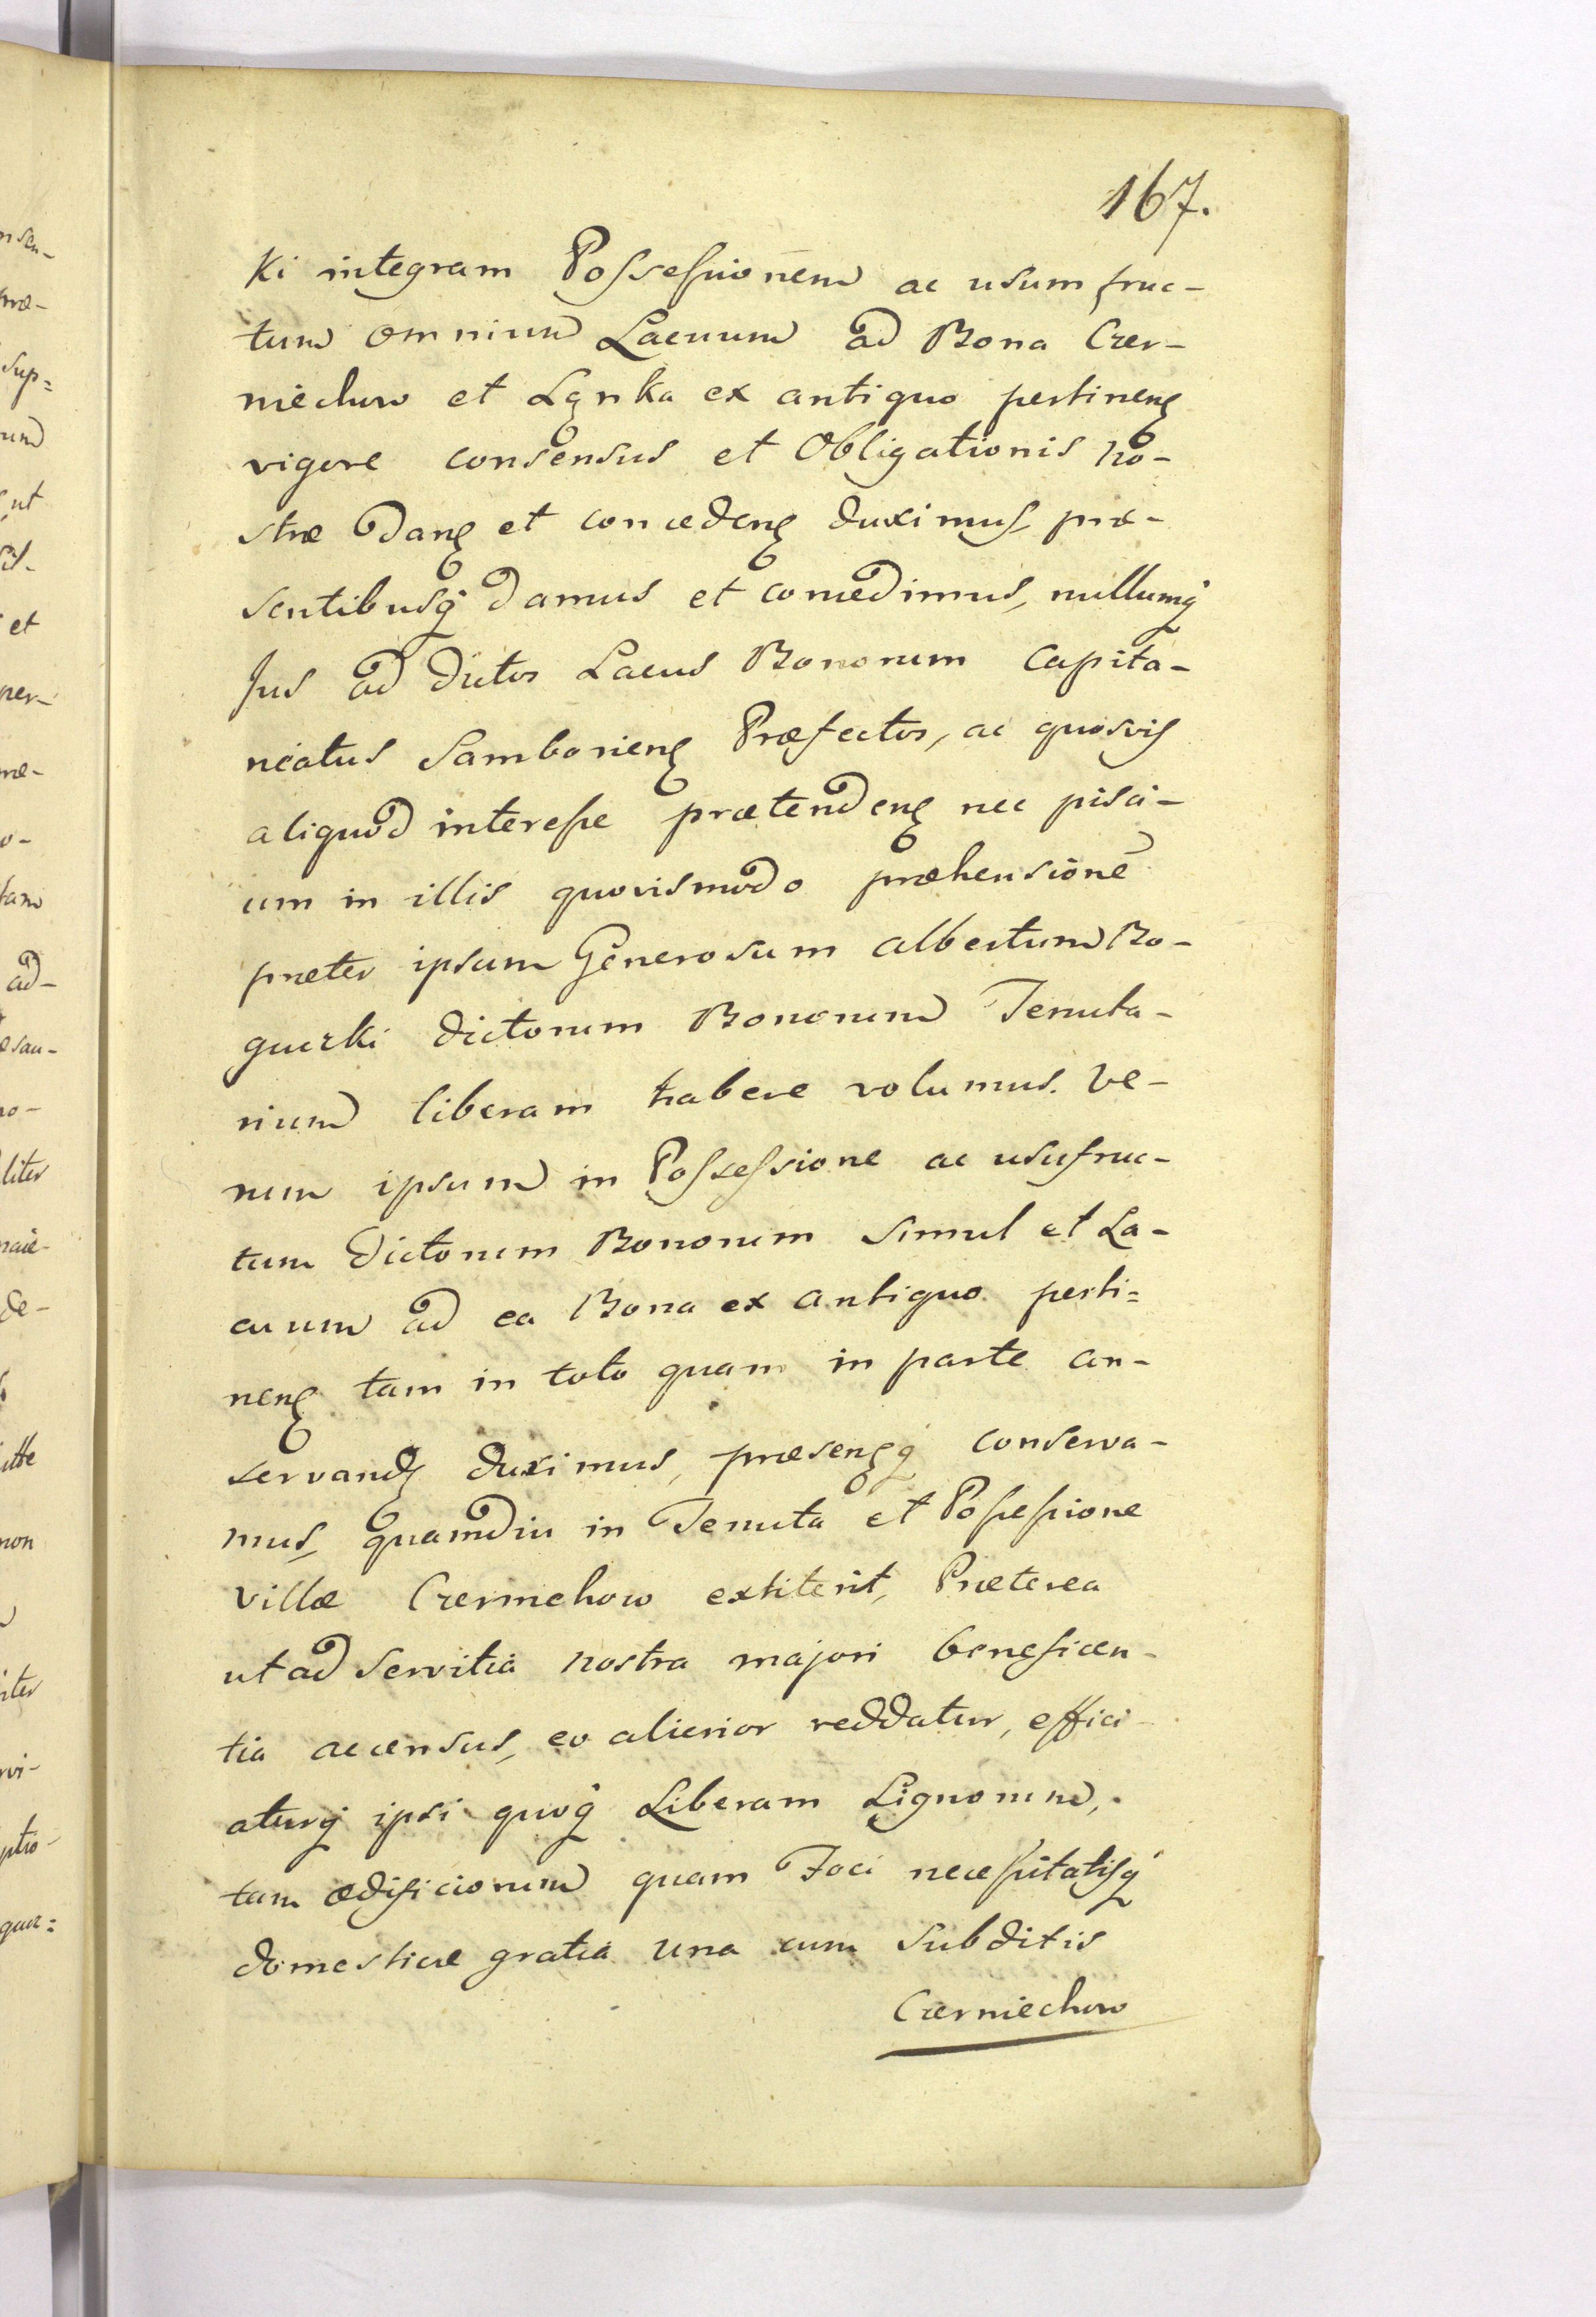 167.
ki integram Possessionem ac usumfruc-
tum omnium Lacuum ad Bona Czer-
niechow et Łąnka ex antiquo pertinenę
vigore consensus et Obligationis no-
stræ Danę et concedenę duximus, præ-
sentibusq́ damus et concedimus, nullumq́
Jus ad dictos Lacus Bonorum Capita-
neatus Samborienę Præfectos, ac quosvis
aliquod interesse prætendenę nec pisci-
um in illis quovismodo præhensionē
præter ipsum Generosum Albertum Bo-
gucki dictorum Bonorum Tenuta-
rium liberam habere volumus. Ve-
rum ipsum in Possessione ac usufruc-
tum dictorum Bonorum simul et La-
cuum ad ea Bona ex antiquo perti=
nenę tam in toto quam in parte con-
servandę duximus, præsenęq́ conserva-
mus, quamdiu in Tenuta et Possessione
Villæ Czerniehow extiterit, Præterea
ut ad servitia nostra majori beneficen-
tia accensus, eo alicrior reddatur, effici-
aturq́ ipsi quoq́ Liberam Lignorum,
tam ædificiorum quam Foci necessitatisq́
domesticæ gratia una cum subditis
Czerniechow